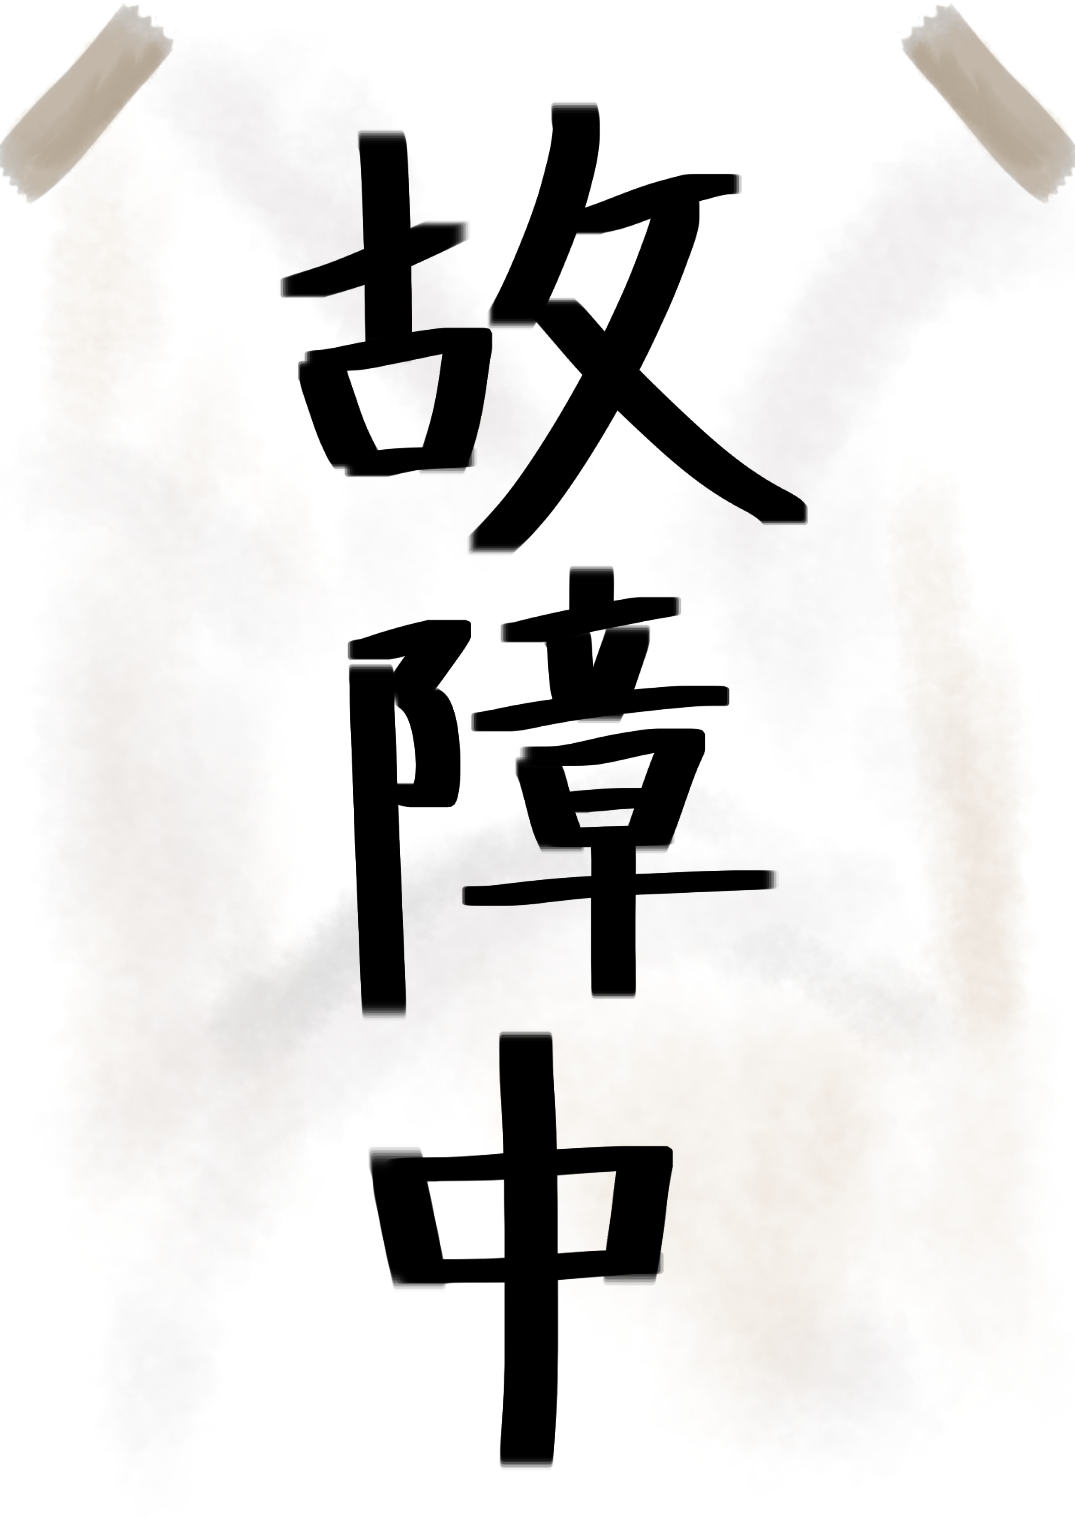 故障中